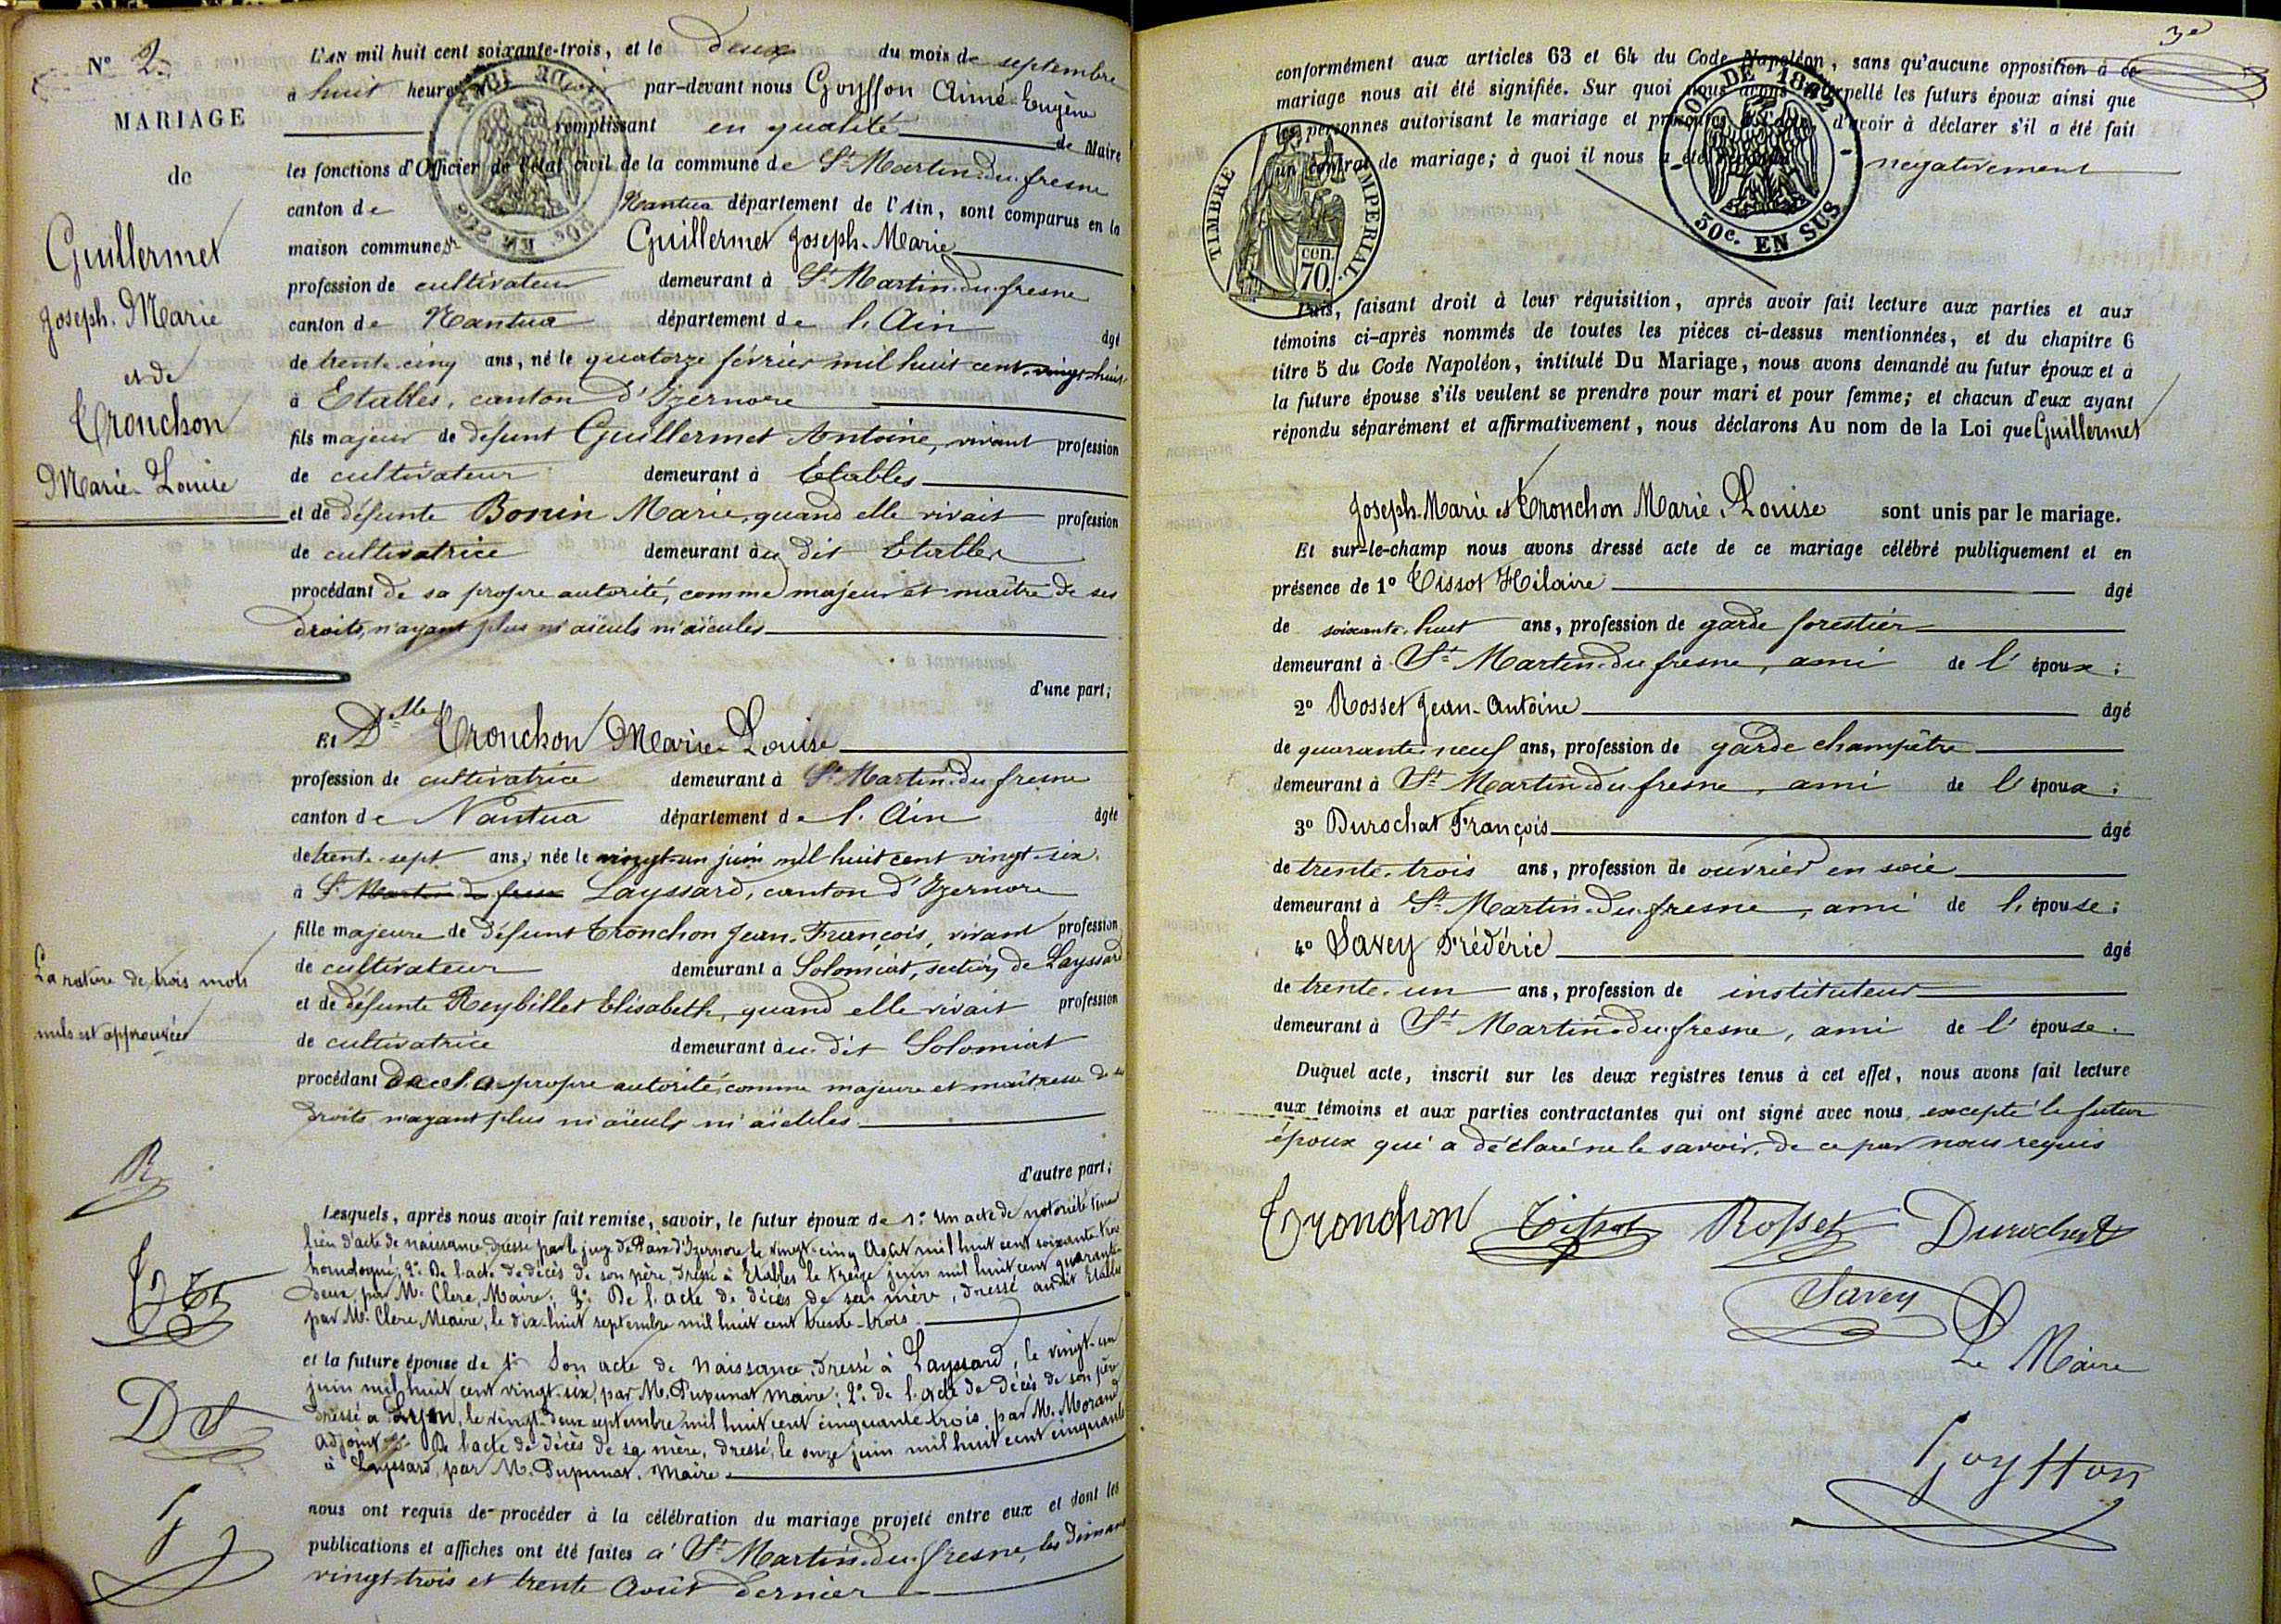 N° 2.
MARIAGE
de
Guillermet
Joseph. Marie
et de
Tronchon
Marie-Louise
La rature de trois mots
nuls est approuvée
L'AN mil huit cent soixante-trois, et le deux du mois de septembre
à huit heures par-devant nous Goyffon Aimé-Eugène
remplissant en qualité de Maire
les fonctions d'Officier de l'état civil de la commune de St Martin-du-fresne
canton de Nantua département de l'Ain, sont comparus en la
maison commune Guillermet Joseph-Marie
profession de cultivateur demeurant à St Martin-du-fresne
canton de Nantua département de l'Ain âgé
de trente-cinq ans, né le quatorze février mil huit cent vingt-huit
à Etables, canton d'Izernore
fils majeur de défunt Guillermet Antoine, vivant profession
de cultivateur demeurant à Etables
et de défunte Bonin Marie, quand elle vivait profession
de cultivatrice demeurant au dit Etables
procédant de sa propre autorité, comme majeur et maître de ses
droits, n'ayant plus ni aïeuls ni aïeules
d'une part;
Et Delle Tronchon Marie-Louise
profession de cultivatrice demeurant à St Martin-du-fresne
canton de Nantua département de l'Ain âgée
de trente-sept ans, née le vingt-un juin mil huit cent vingt-six
à St Martin du fresne Layssard, canton d'Izernore
fille majeure de défunt Tronchon Jean-François, vivant profession
de cultivateur demeurant à Solomiat, section de Layssard
et de défunte Reybillet Elisabeth, quand elle vivait profession
de cultivatrice demeurant au dit Solomiat
procédant de sa propre autorité, comme majeure et maîtresse de ses
droits n'ayant plus ni aïeuls ni aïeules
d'autre part;
Lesquels, après nous avoir fait remise, savoir, le futur époux de 1° Un acte de notoriété tenant
lieu d'acte de naissance, dressé par le juge de Paix d'Izernore le vingt-cinq Août mil huit cent soixante-trois
homologué; 2° De l'acte de décès de son père, dressé à Etables le treize juin mil huit cent quarante-
deux, par M. Clerc, Maire; 3° De l'acte de décès de sa mère, dressé au dit Etables
par M. Clerc Maire, le dix-huit septembre mil huit cent trente-trois
et la future épouse de 1° Son acte de naissance, dressé à Layssard, le vingt-un
juin mil huit cent vingt-six, par M. Pupunat maire; 2° de l'acte de décès de son père
dressé à Lyon, le vingt-deux septembre mil huit cent cinquante-trois, par M. Morand
adjoint; 3° De l'acte de décès de sa mère, dressé, le onze juin mil huit cent cinquante
à Layssard, par M. Pupunat, maire
nous ont requis de procéder à la célébration du mariage projeté entre eux et dont les
publications et affiches ont été faites à St Martin-du-fresne, les Diman
vingt-trois et trente Août dernier
conformément aux articles 63 et 64 du Code Napoléon, sans qu'aucune opposition à ce
mariage nous ait été signifiée. Sur quoi nous avons interpellé les futurs époux ainsi que
les personnes autorisant le mariage et présentes à l'acte, d'avoir à déclarer s'il a été fait
un contrat de mariage; à quoi il nous a été négativement
TIMBRE IMPERIAL
cen. 70.
30c. EN SUS
Puis, faisant droit à leur réquisition, après avoir fait lecture aux parties et aux
témoins ci-après nommés de toutes les pièces ci-dessus mentionnées, et du chapitre 6
titre 5 du Code Napoléon, intitulé Du Mariage, nous avons demandé au futur époux et à
la future épouse s'ils veulent se prendre pour mari et pour femme; et chacun d'eux ayant
répondu séparément et affirmativement, nous déclarons Au nom de la Loi que Guillermet
Joseph-Marie et Tronchon Marie-Louise sont unis par le mariage.
Et sur-le-champ nous avons dressé acte de ce mariage célébré publiquement et en
présence de 1° Tissot Hilaire âgé
de soixante-huit ans, profession de garde forestier
demeurant à St Martin-du-fresne, ami de l'époux;
2° Rosset Jean-Antoine âgé
de quarante-neuf ans, profession de garde champêtre
demeurant à St Martin-du-fresne, ami de l'époux;
3° Durochat François âgé
de trente-trois ans, profession de ouvrier en soie
demeurant à St Martin-du-fresne, ami de l'épouse;
4° Savey Frédéric âgé
de trente-un ans, profession de instituteur
demeurant à St Martin-du-fresne, ami de l'épouse.
Duquel acte, inscrit sur les deux registres tenus à cet effet, nous avons fait lecture
aux témoins et aux parties contractantes qui ont signé avec nous, excepté le futur
époux qui a déclaré ne le savoir, de ce par nous requis
Tronchon Tissot Rosset Durochat
Savey
Le Maire
Goyffon